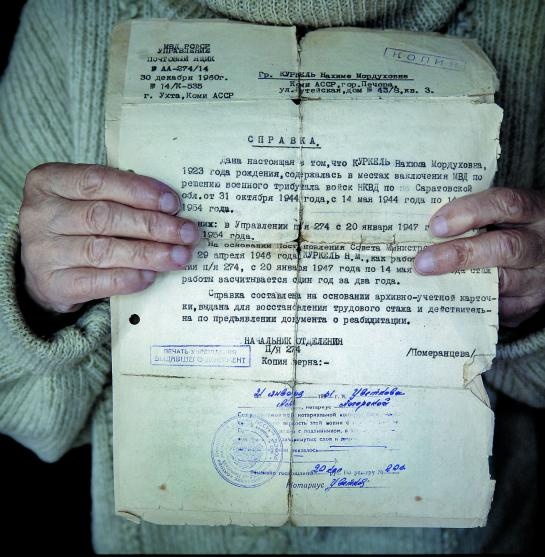 МВД РСФСР
УПРАВЛЕНИЕ
ПОЧТОВЫЙ ЯЩИК
№ АА-274/14
30 декабря 1960г.
№ 14/К-535
г. Ухта, Коми АССР
КОПИЯ
Гр. КУРКЕЛЬ Нахиме Мордуховне
Коми АССР, гор. Печора,
ул. Путейская, дом № 43/8, кв. 3.
СПРАВКА.
Дана настоящая в том, что КУРКЕЛЬ Нахима Мордуховна,
1923 года рождения, содержалась в местах заключения МВД по
решению военного трибунала войск НКВД по Саратовской
обл. от 31 октября 1944 года, с 14 мая 1944 года по 14
1954 года.
ник: в Управлении п/я 274 с 20 января 1947 г
1954 года.
На основании Постановления Совета Министров
29 апреля 1946 года, КУРКЕЛЬ Н.М., как работ
нии п/я 274, с 20 января 1947 года по 14 мая года стаж
работы засчитывается один год за два года.
Справка составлена на основании архивно-учетной карточ-
ки, выдана для восстановления трудового стажа и действитель-
на по предъявлении документа о реабилитации.
НАЧАЛЬНИК ОТДЕЛЕНИЯ
П/Я 274
/Померанцева/
ПЕЧАТЬ УЧРЕЖДЕНИЯ
ВЫДАВШЕГО ДОКУМЕНТ
Копия верна:-
21 января
нотариус
нотариальной
верность этой копии с
с подлинником, в
зачеркнутых слов и
оказалось
по реестру №
Нотариус